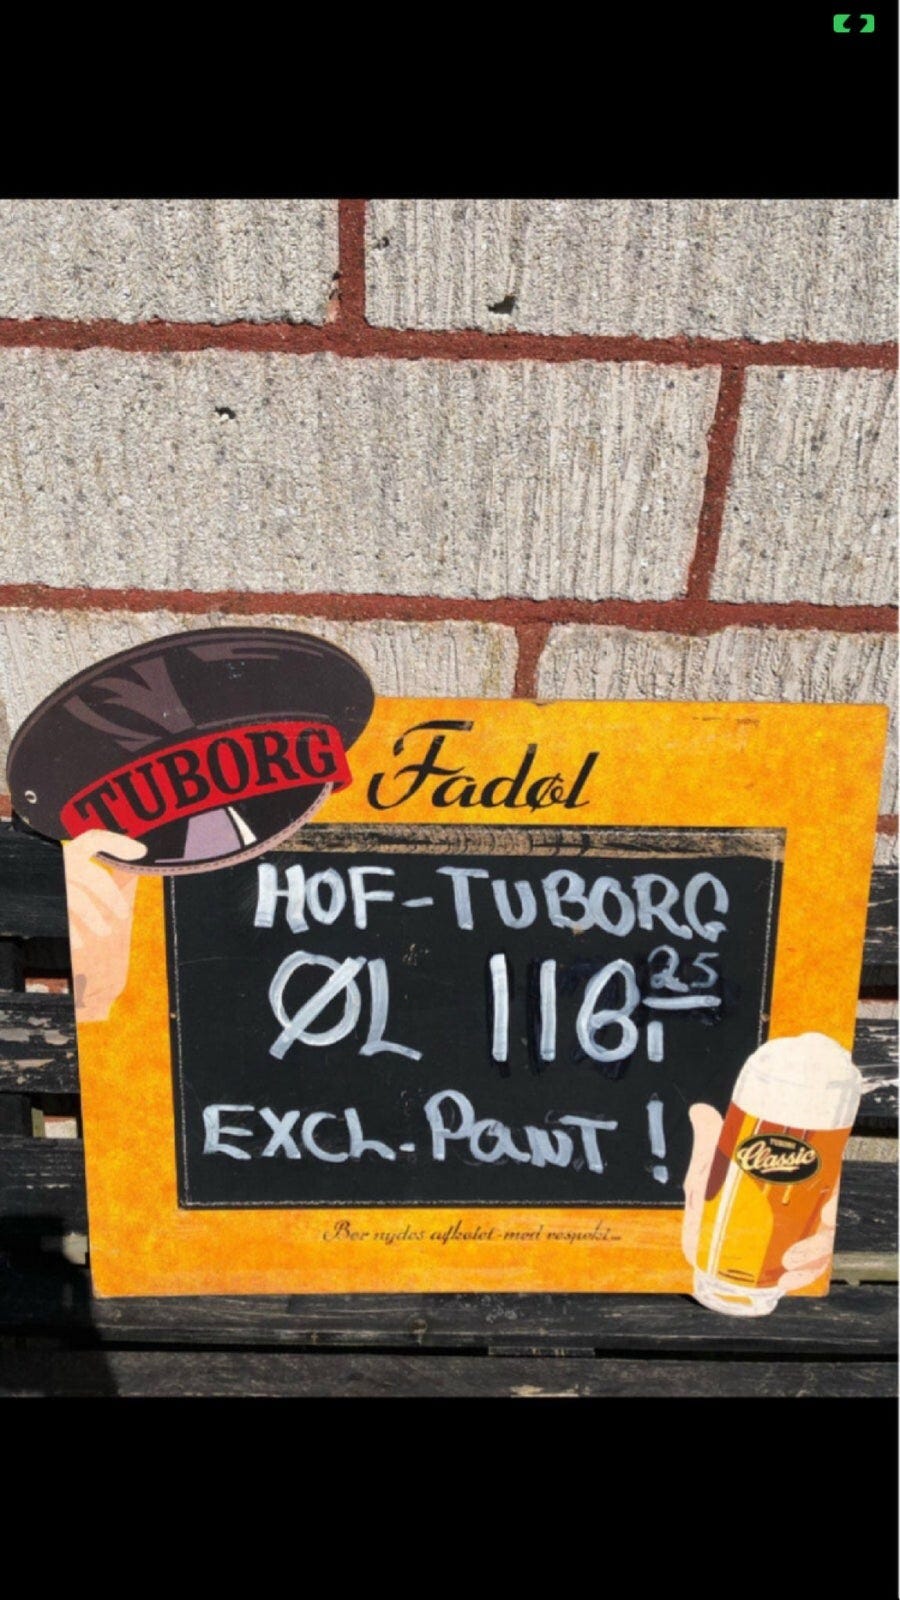 TUBORG
Fadøl
HOF-TUBORG
ØL 116,25
EXCL. PANT!
TUBORG
Classic
Bør nydes afkølet - med respekt...